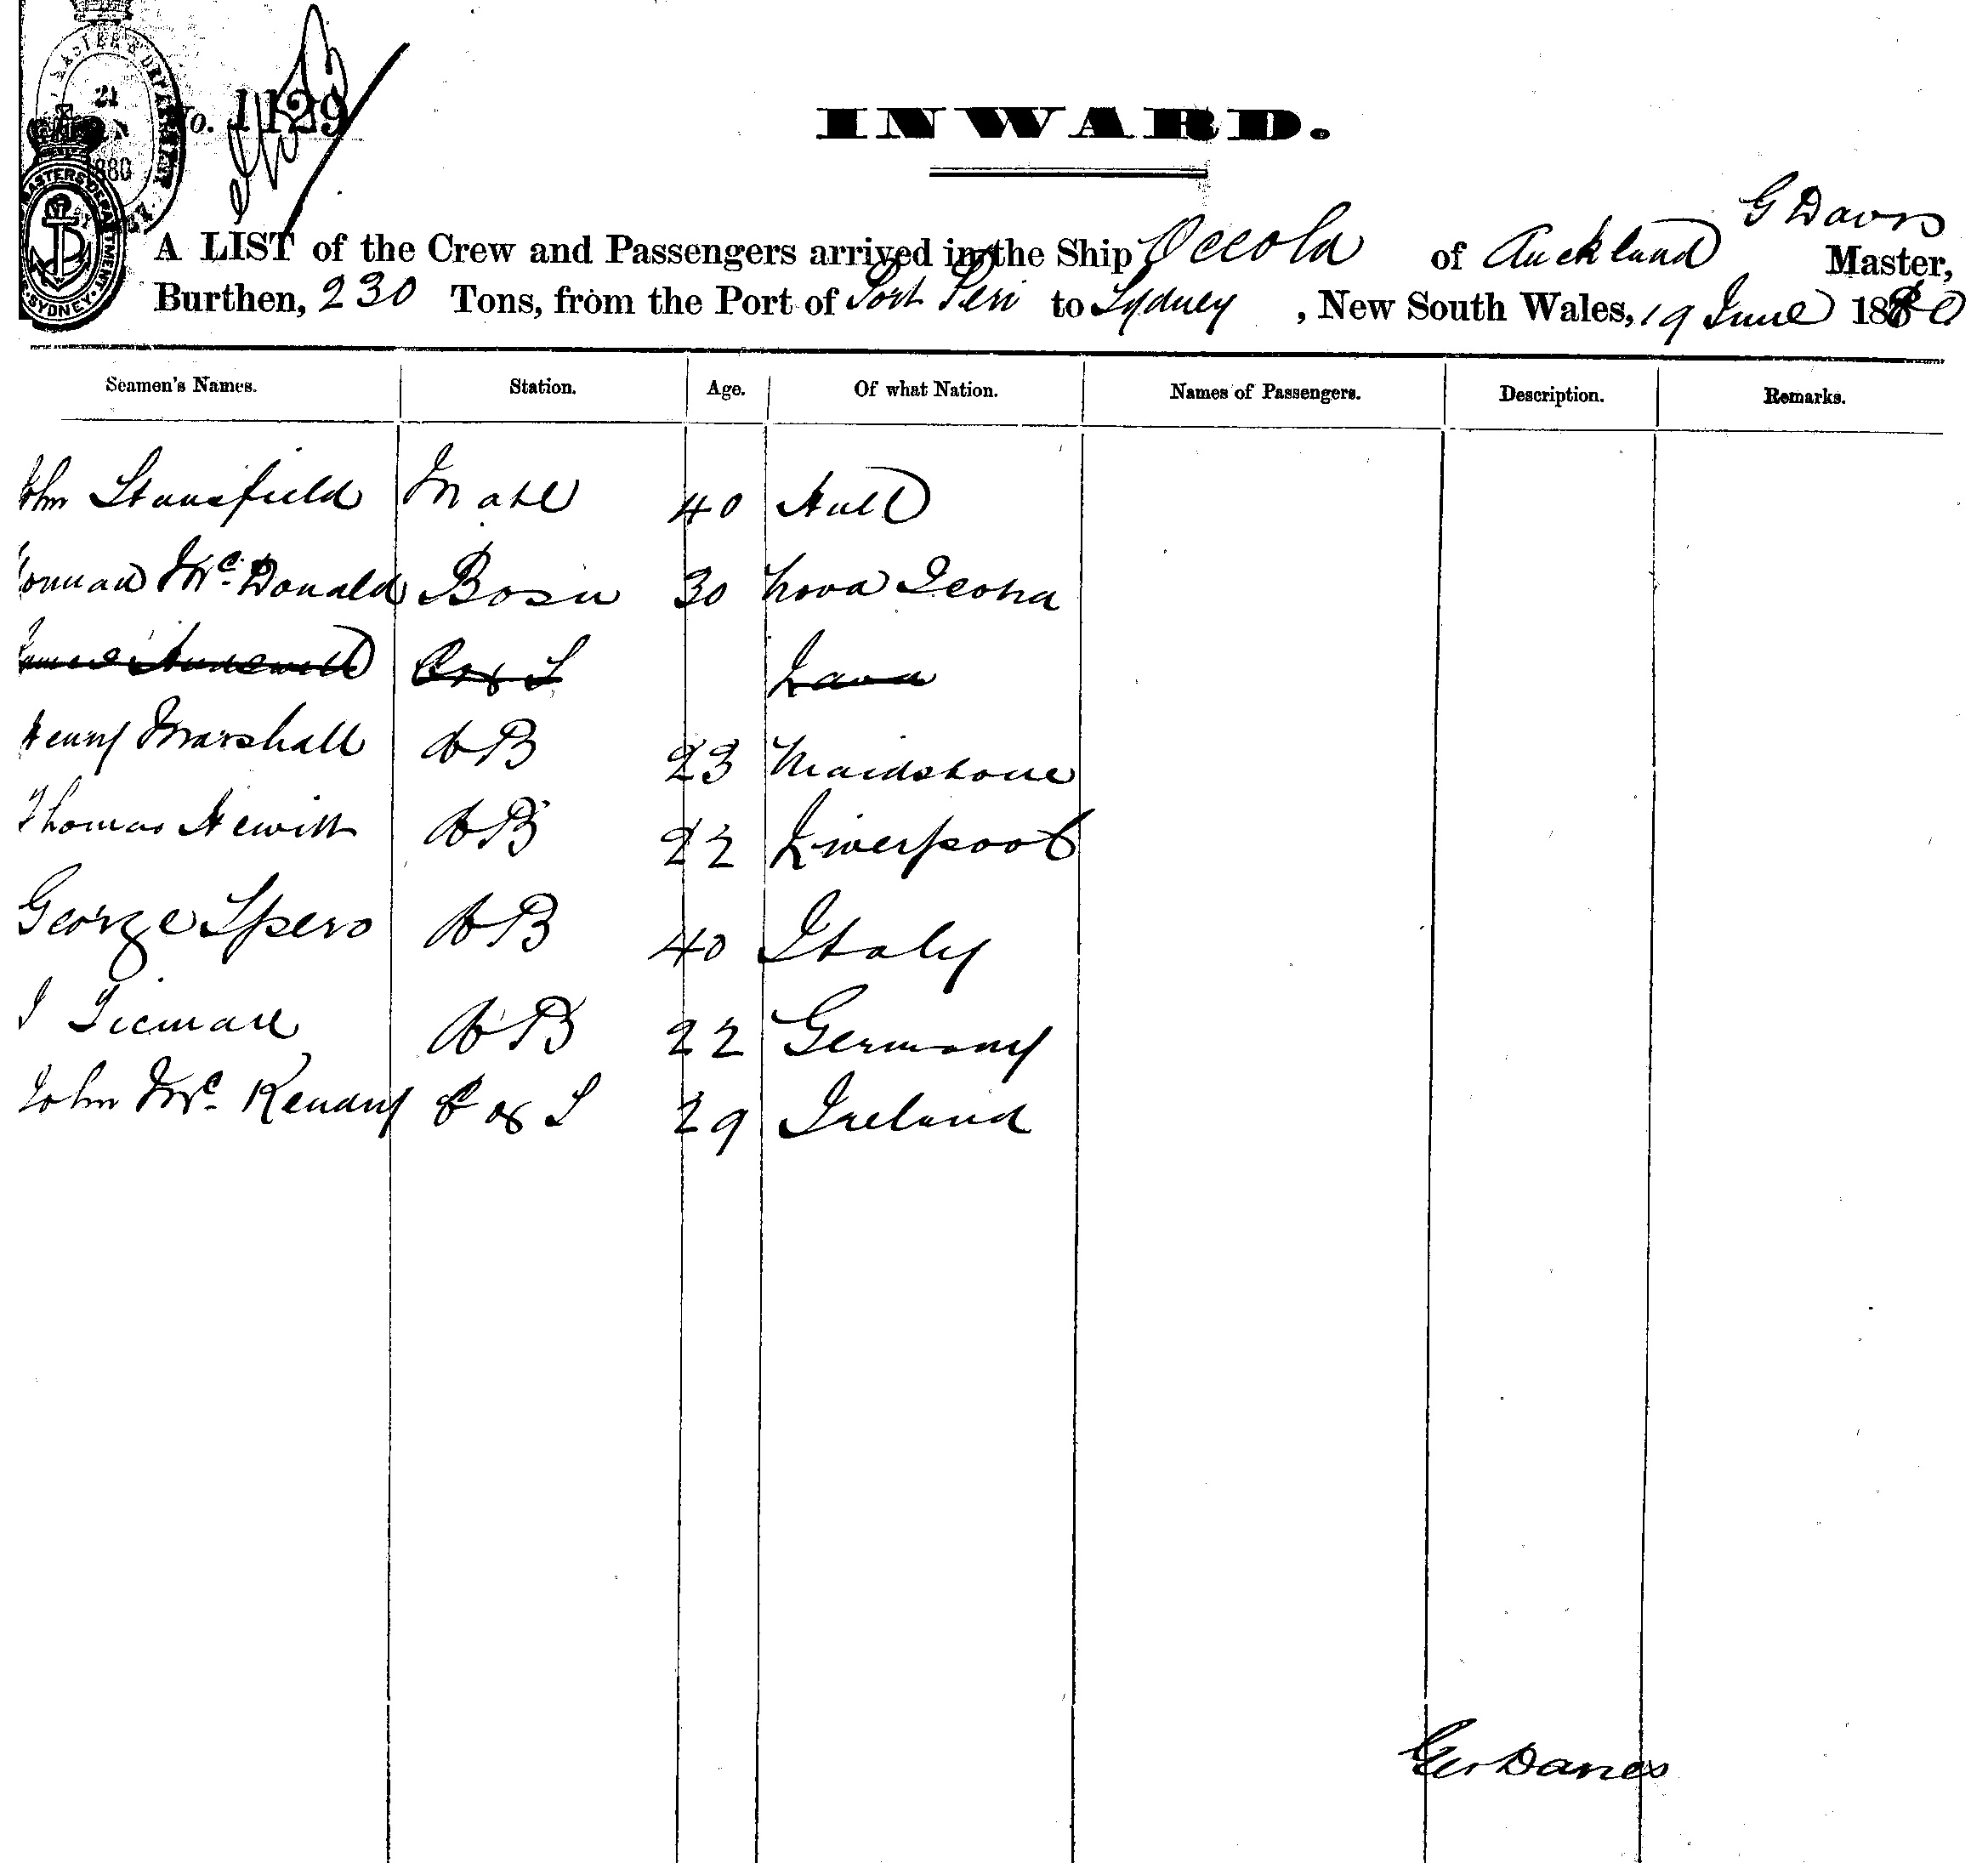 No. 1129
INWARD.
G Davis
A LIST of the Crew and Passengers arrived in the Ship Occola of Auckland Master,
Burthen, 230 Tons, from the Port of Port Peri to Sydney, New South Wales, 19 June 1880
Seamen's Names. Station. Age. Of what Nation. Names of Passengers. Description. Remarks.
John Stansfield Mate 40 Hull
Norman McDonald Bosn 30 Nova Scotia
Henry Marshall AB 23 Maidstone
Thomas Hewitt AB 22 Liverpool
George Spero AB 40 Italy
22 Germany
AB
John McKenny C & S 29 Ireland
Geo Davies